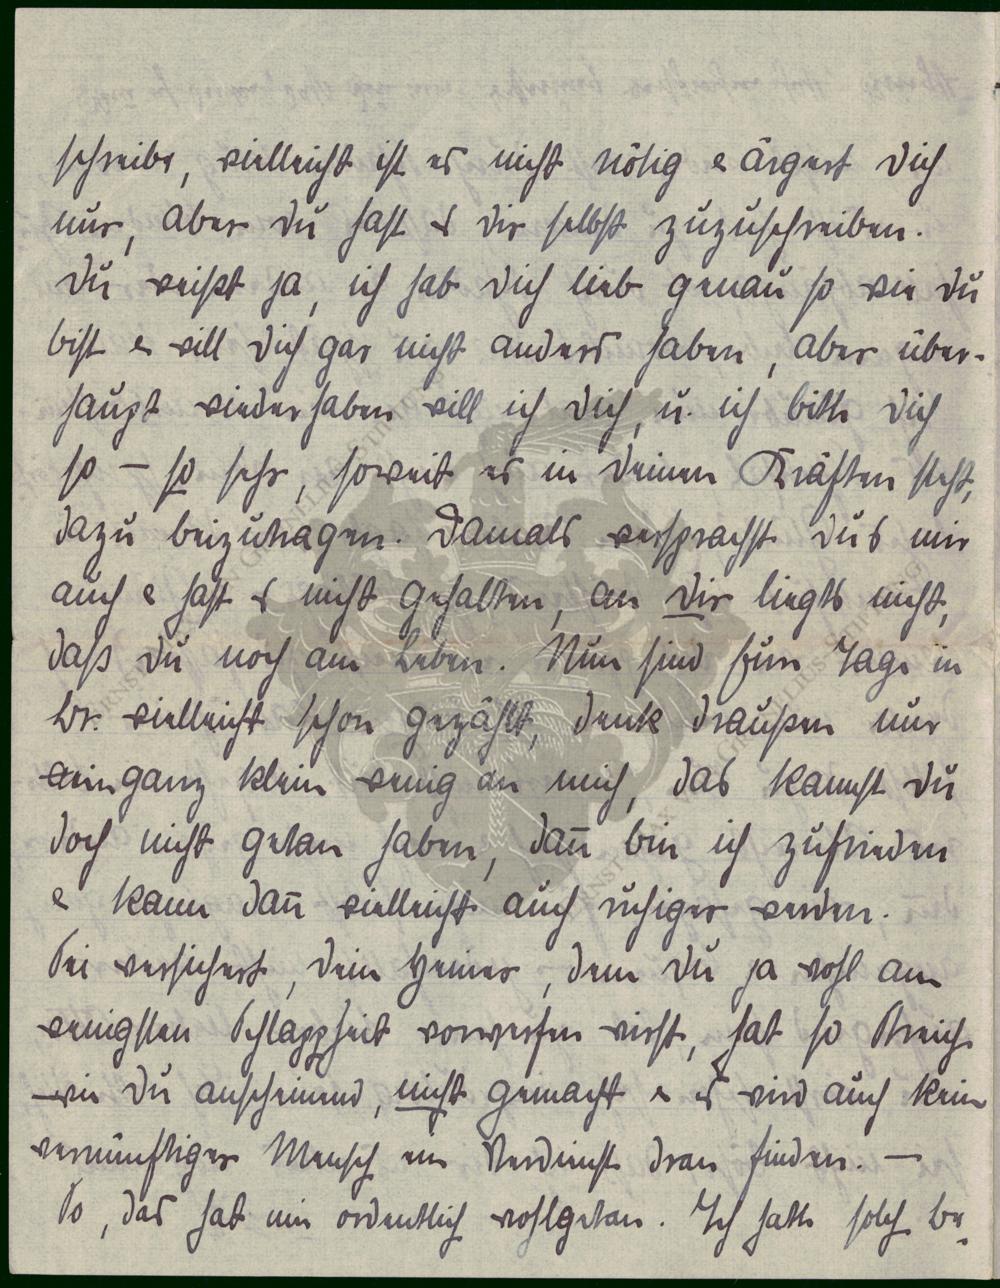 schreibe, vielleicht ist es nicht nötig & ärgert Dich
nur, aber Du hast es Dir selbst zuzuschreiben.
Du weißt ja, ich hab Dich lieb genau so wie Du
bist & will Dich gar nicht anders haben, aber über-
haupt wiederhaben will ich Dich, u. ich bitte Dich
so — so sehr, soweit es in Deinen Kräften steht,
dazu beizutragen. Damals versprachst Dus mir
auch & hast es nicht gehalten, an Dir liegts nicht,
daß Du noch am Leben. Nun sind Eure Tage in
Br. vielleicht schon gezählt, denk draußen nur
ein ganz klein wenig an mich, das kannst Du
doch nicht getan haben, dan̄ bin ich zufrieden
& kann dan̄ vielleicht auch ruhiger werden.
Sei versichert, Dein Heiner, dem Du ja wohl am
wenigsten Schlappheit vorwerfen wirst, hat so Streiche
wie Du anscheinend, nicht gemacht & es wird auch kein
vernünftiger Mensch ein Verdienst dran finden. —
So, das hat mir ordentlich wohlgetan. Ich hatte solch be-